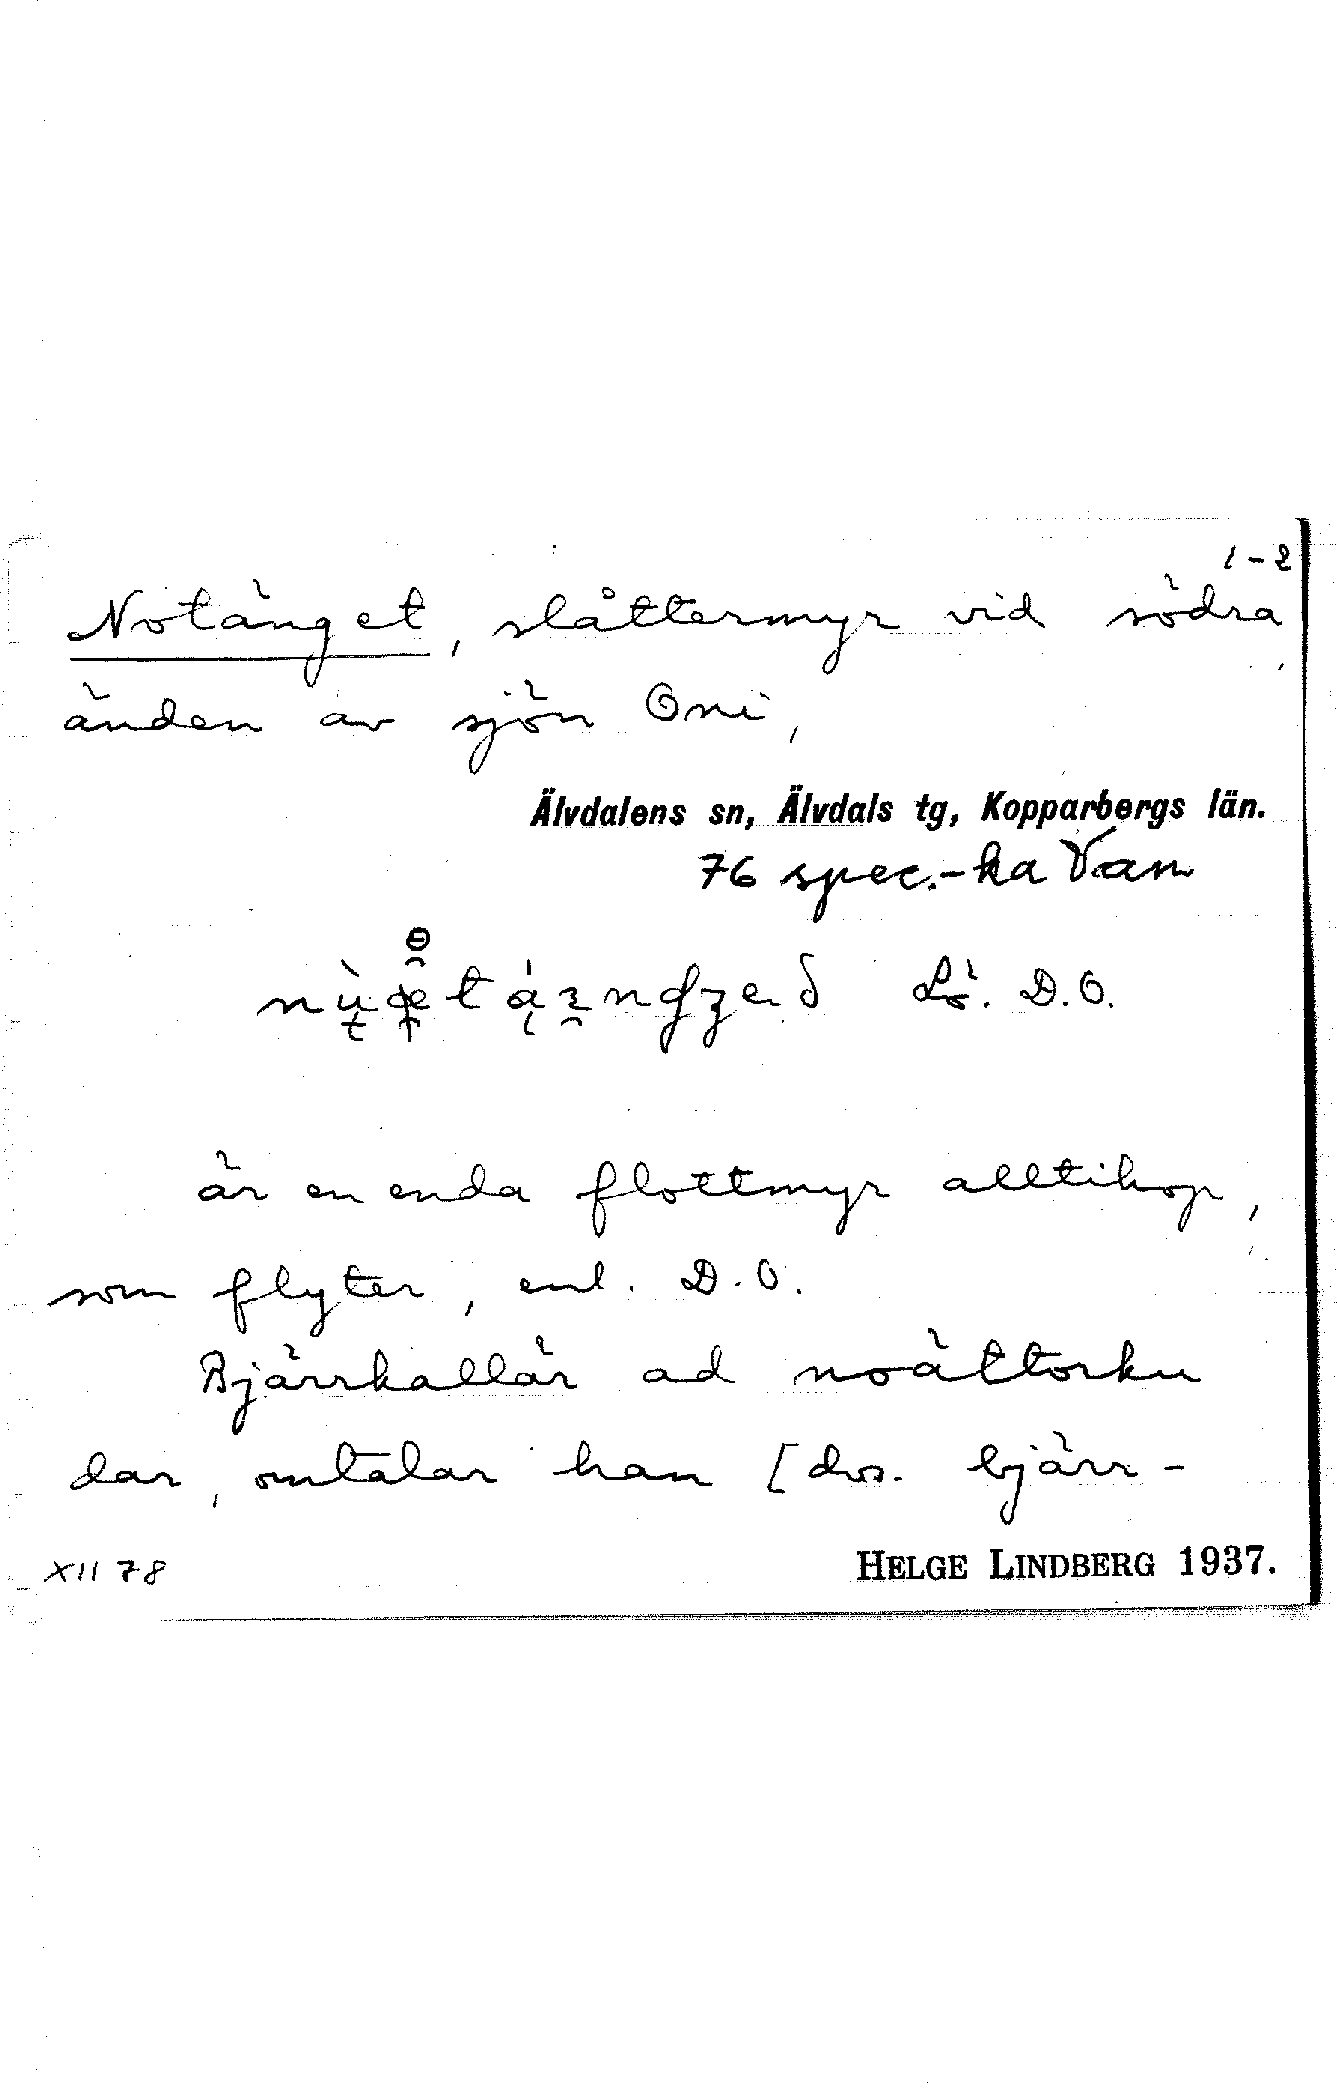 1-2
Notänget, slåttermyr vid södra
änden av sjön Oni,
Älvdalens sn, Älvdals tg, Kopparbergs län.
76 spec.-ka Van
Lö. D.O.
är en enda flottmyr alltihop,
som flyter, enl. D.O.
Bjärrkallär ad noättorku
dar, omtalar han [dvs. bjärr-
XII 78
HELGE LINDBERG 1937.